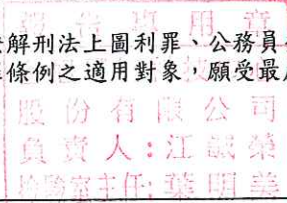 解刑法上圖利罪、公務員
條例之適用對象，願受最
報告專用章
股份有限公司
負責人：江誠榮
檢驗室主任：葉明美